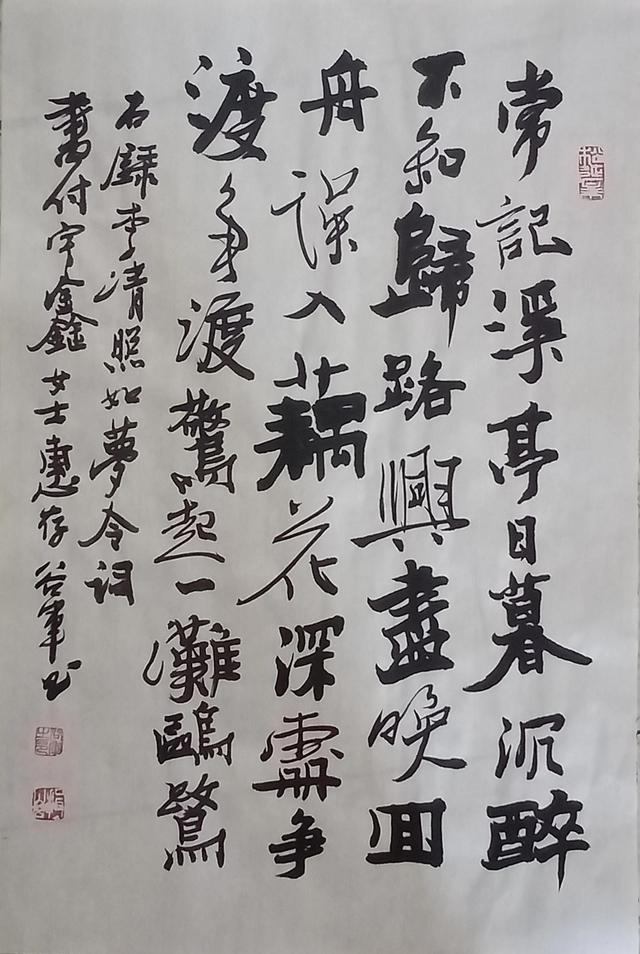 常記溪亭日暮沉醉
不知歸路興盡晚囬
舟誤入藕花深處争
渡争渡驚起一灘鷗鷺
右録李清照如夢令詞
書付金鑫女士惠存谷軍书